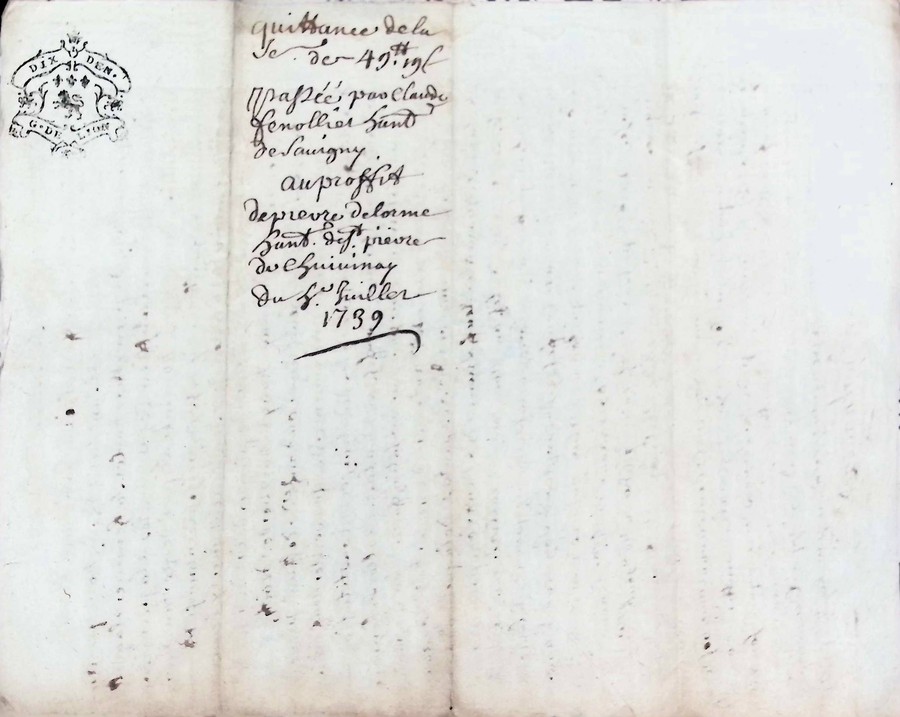 DIX DEN.
G. DE LION
quittance de la
Se. de 49.tt 19ſ
passéé par Claude
fenolliet hant
de Savigny
au proffit
de pierre delorme
hant. de St. pierre
du
Juillet
1739